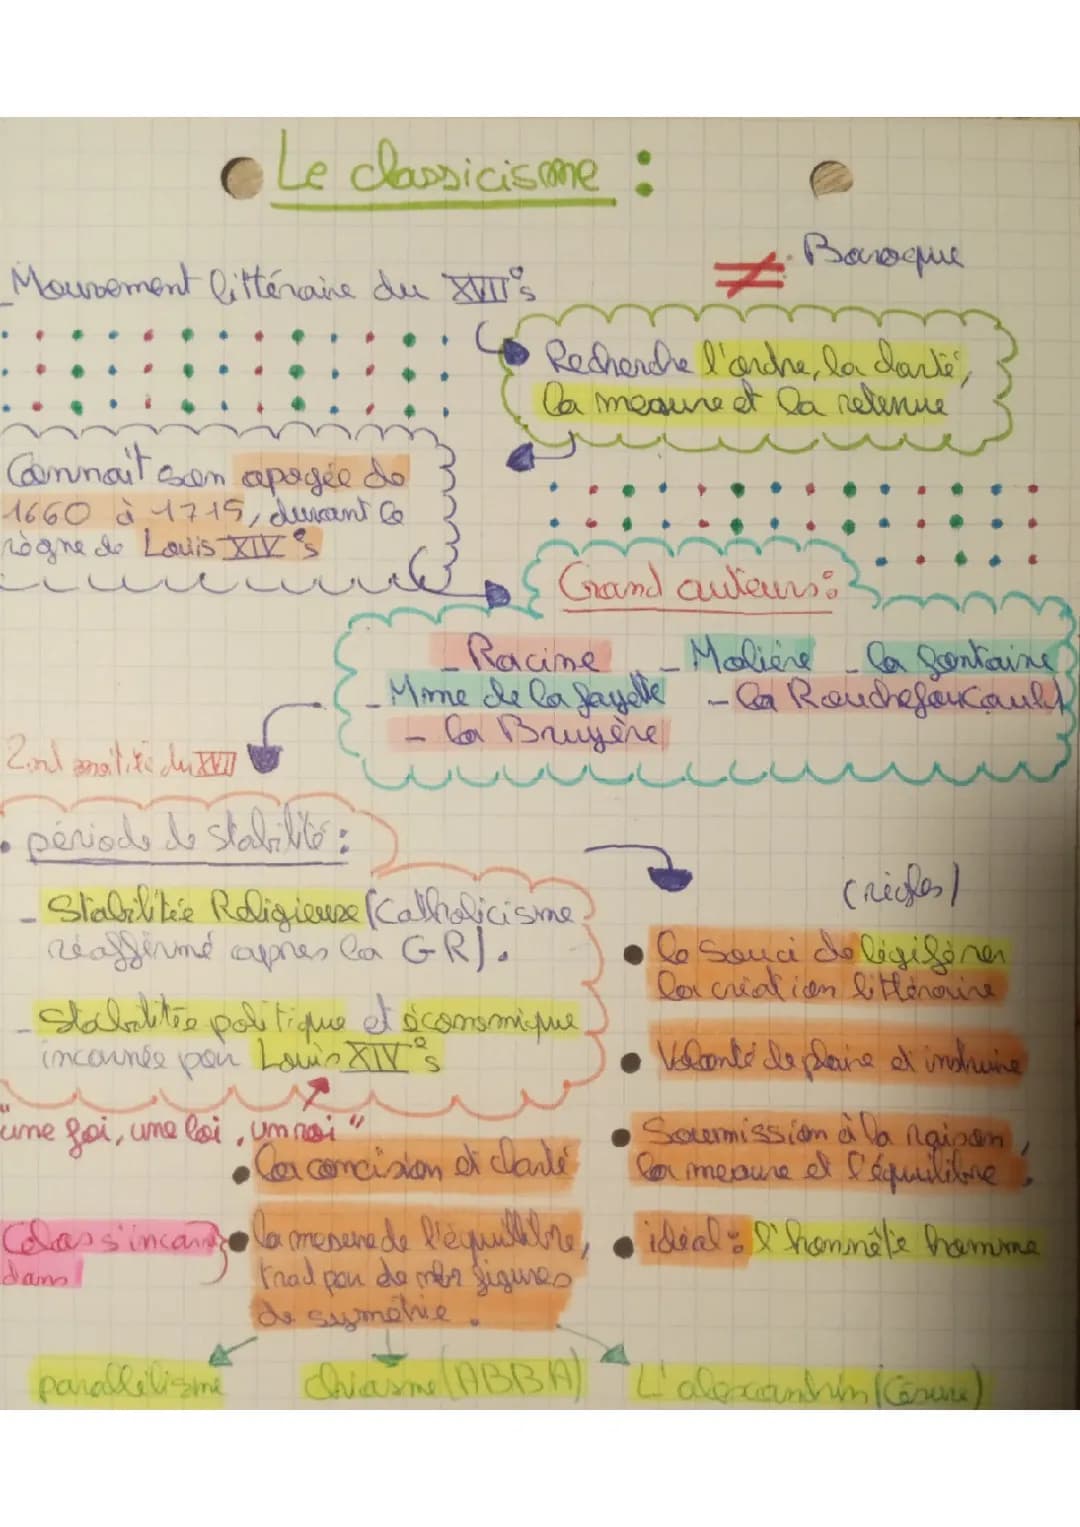 Le classicisme :
Mouvement littéraire du XVII°s
≠ Baroque
Recherche l'ordre, la clarté,
la mesure et la retenue
Connait son apogée de
1660 à 1715, durant le
règne de Louis XIV°s
Grand auteurs :
- Racine - Molière - la fontaine
- Mme de la fayette - la Rouchefoucault
- la Bruyère
2nd moitité du XVII
• période de stabilité :
- Stabilitée Religieuse (Catholicisme
réaffirmé apres la GR).
- Stabilitée politique et économique
incarnée par Louis XIV°s
"une foi, une loi, un roi"
(règles)
• le souci de légiférer
la création littéraire
• Volonté de plaire et instruire
• Soumission à la raison,
la mesure et l'équilibre.
• idéal : l'honnête homme
• La concision et clarté
Cela s'incarne
dans
• la mesure de l'équilibre,
trad par de nbr figures
de symétrie.
parallélisme
chiasme (ABBA)
L'alexandrin (Césure)